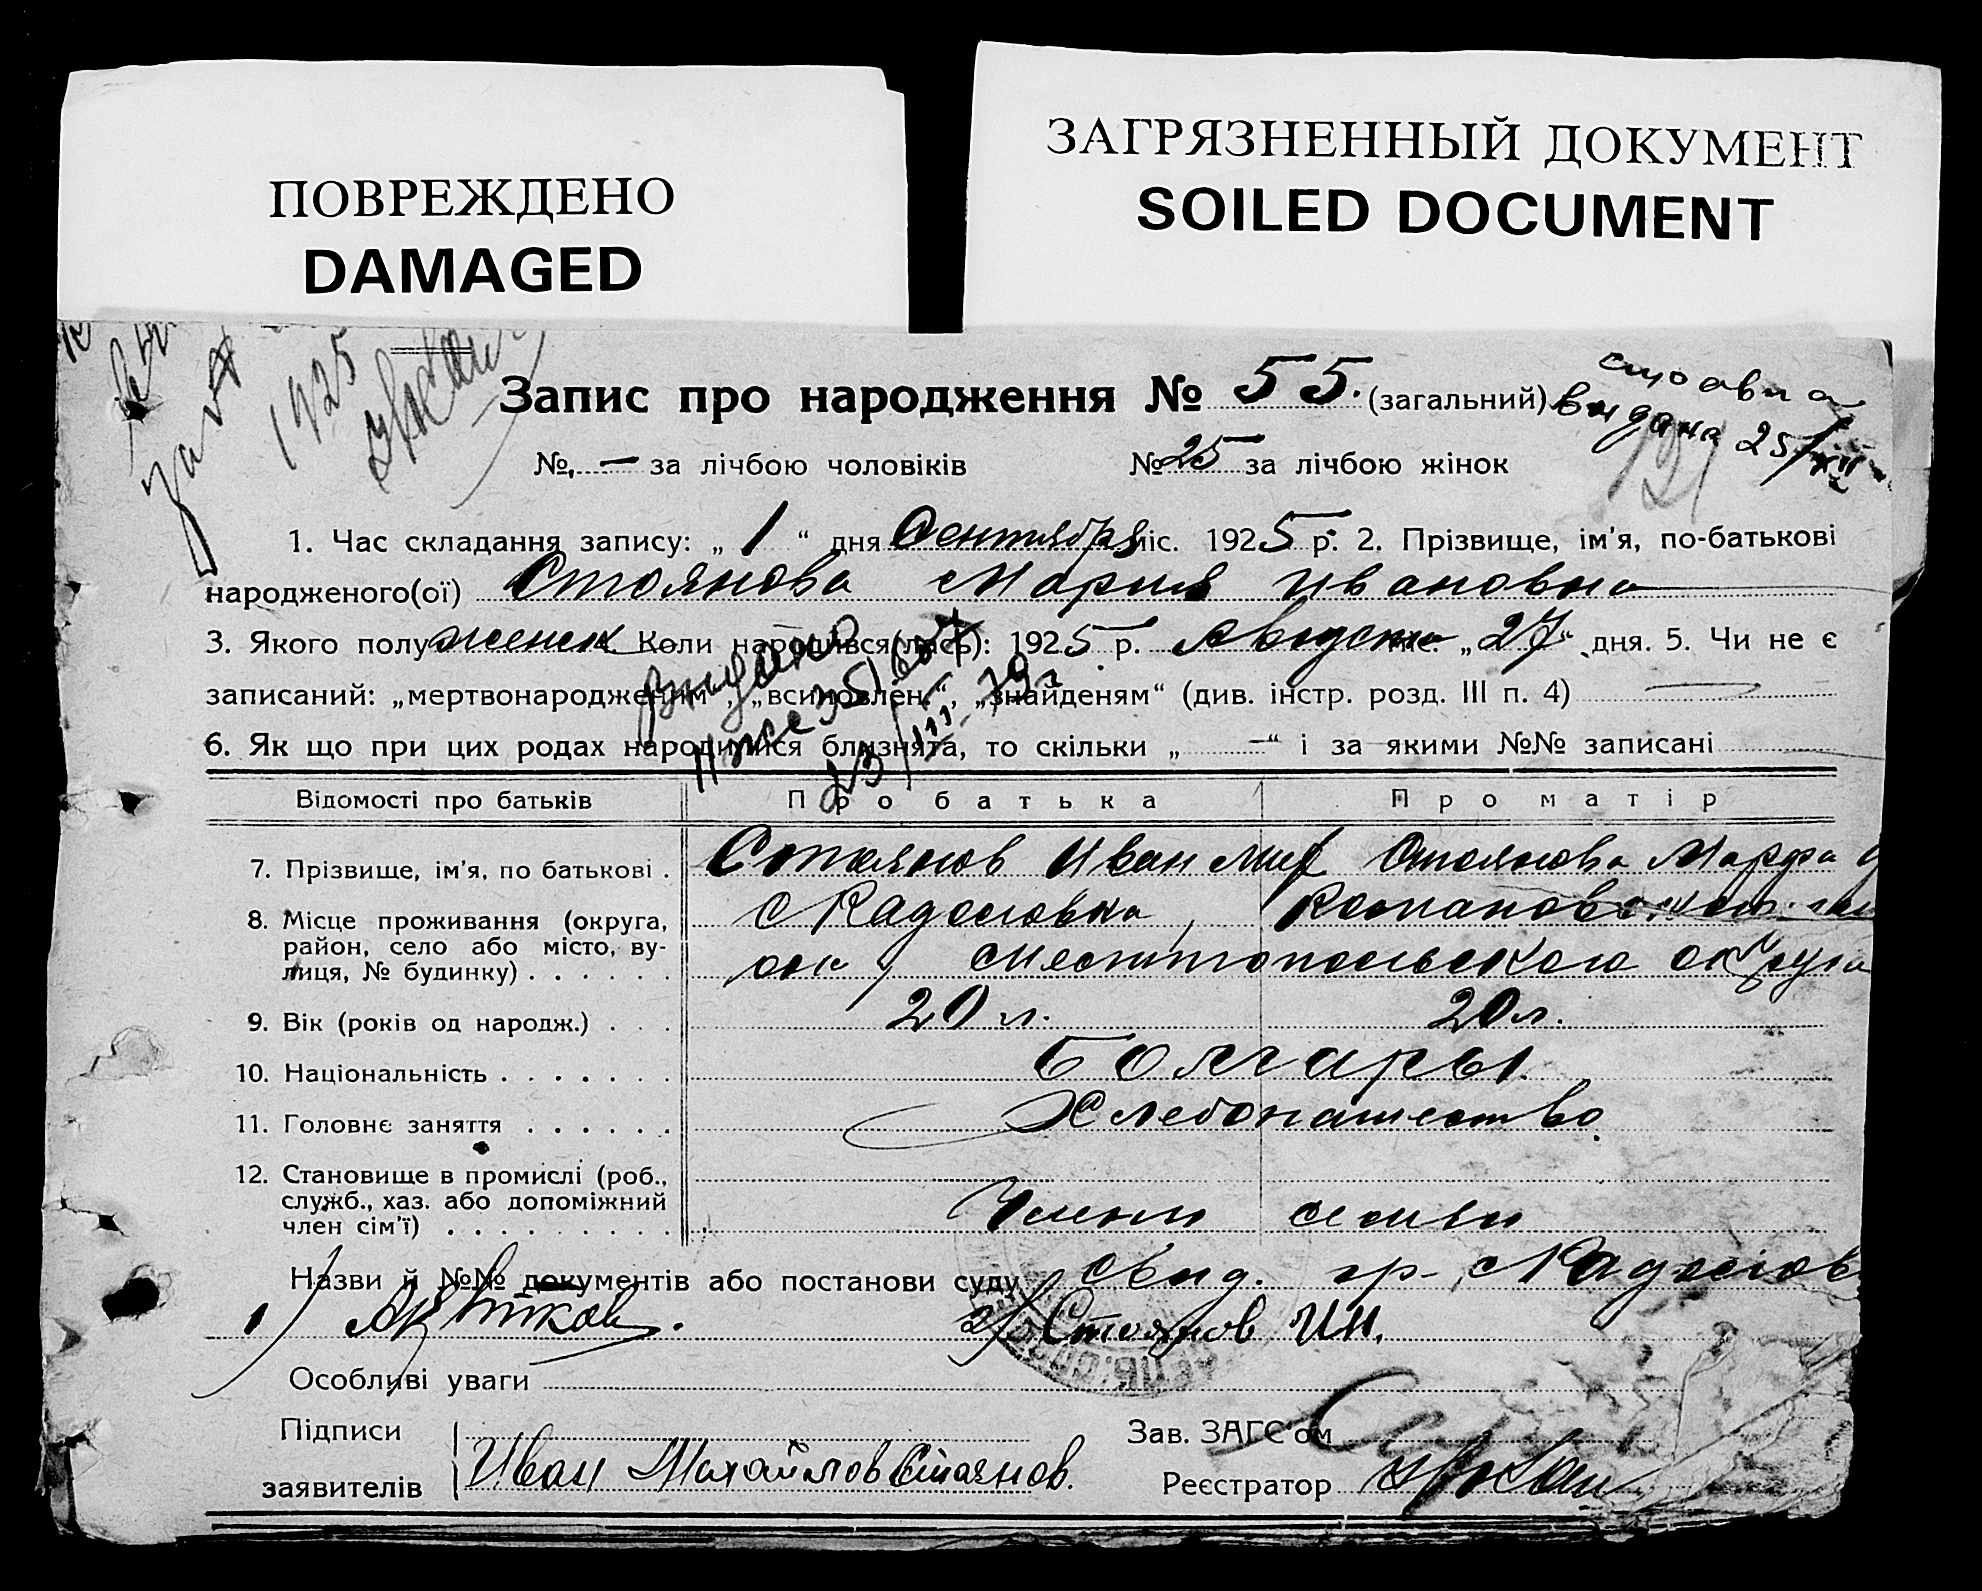 ПОВРЕЖДЕНО
DAMAGED
ЗАГРЯЗНЕННЫЙ ДОКУМЕНТ
SOILED DOCUMENT
1925
Запис про народження № 55. (загальний)
видана 25/XII
№ — за лічбою чоловіків № 25 за лічбою жінок
1. Час складання запису: „ 1 “ дня Сентября міс. 1925 р. 2. Прізвище, ім'я, по-батькові
народженого(ої) Стоянова Мария Ивановна
3. Якого полу женск Коли народився(лась): 1925 р. Августа міс. „ 27 “ дня. 5. Чи не є
записаний: „мертвонародженим“, „всиновлен.“, „знайденям“ (див. інстр. розд. III п. 4) —
6. Як що при цих родах народилися близнята, то скільки „ — “ і за якими №№ записані
Выдано
23/III-39г
Відомості про батьків Про батька Про матір
7. Прізвище, ім'я, по батькові . Стоянов Иван Мих Стоянова Марфа
8. Місце проживання (округа, с Радоловка,
район, село або місто, ву- Мелитопольского округа
лиця, № будинку) . . . . . .
9. Вік (років од народж.) . . . 20 л. 20 л.
10. Національність . . . . . . . Болгары.
11. Головнє заняття . . . . . . Хлебопашество.
12. Становище в промислі (роб.,
служб., хаз. або допоміжний Члены семьи
член сім'ї) . . . . . . . . .
Назви й №№ документів або постанови суду Свид. гр. с Радолов
1) 2) Стоянов Ив.
Особливі уваги
Підписи Зав. ЗАГС'ом
заявителів Иван Михайлов Стоянов. Реєстратор